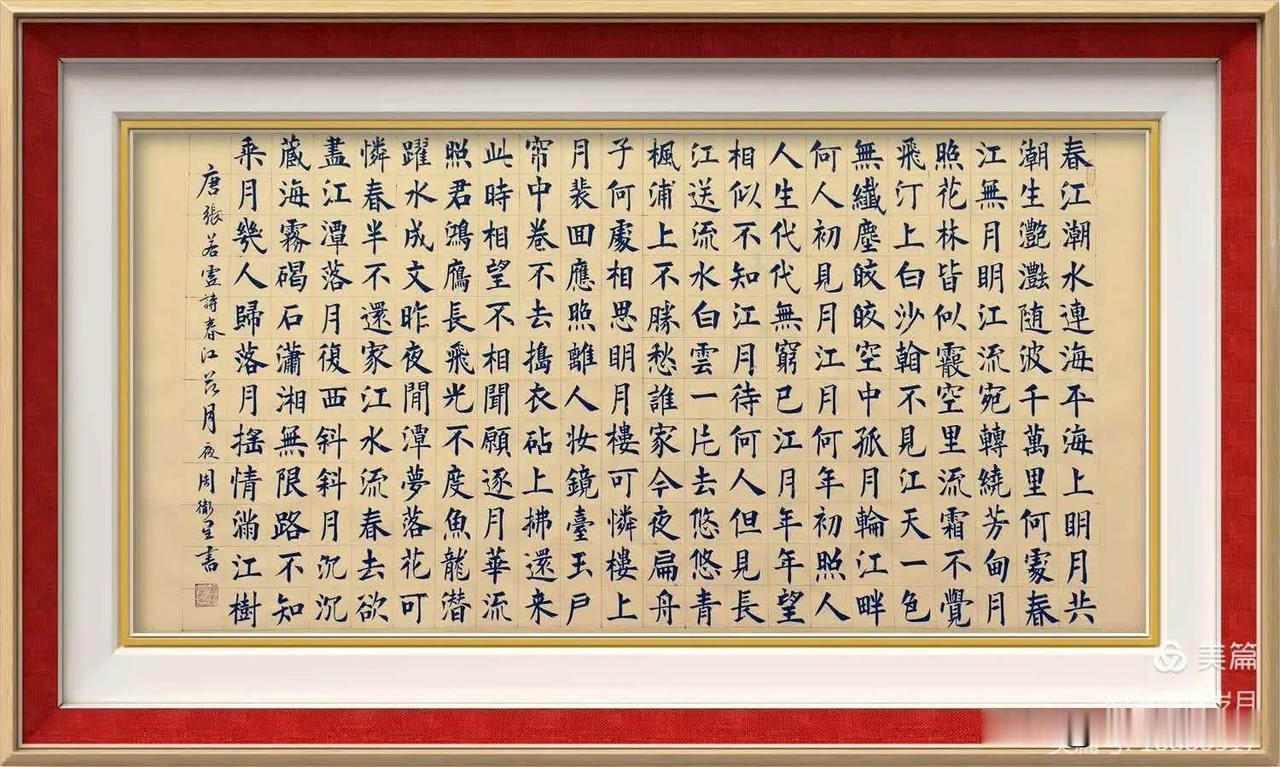 春江潮水連海平海上明月共
潮生灧灧随波千萬里何處春
江無月明江流宛轉繞芳甸月
照花林皆似霰空里流霜不覺
飛汀上白沙翰不見江天一色
無纖塵皎皎空中孤月輪江畔
何人初見月江月何年初照人
人生代代無窮已江月年年望
相似不知江月待何人但見長
江送流水白雲一片去悠悠青
楓浦上不勝愁誰家今夜扁舟
子何處相思明月樓可憐樓上
月裴回應照離人妆鏡臺玉戶
帘中卷不去搗衣砧上拂還来
此時相望不相聞願逐月華流
照君鴻鴈長飛光不度魚龍潜
躍水成文昨夜閒潭夢落花可
憐春半不還家江水流春去欲
盡江潭落月復西斜斜月沉沉
藏海霧碣石瀟湘無限路不知
乘月幾人歸落月搖情滿江樹
唐張若虛詩春江花月夜周衛書
美篇